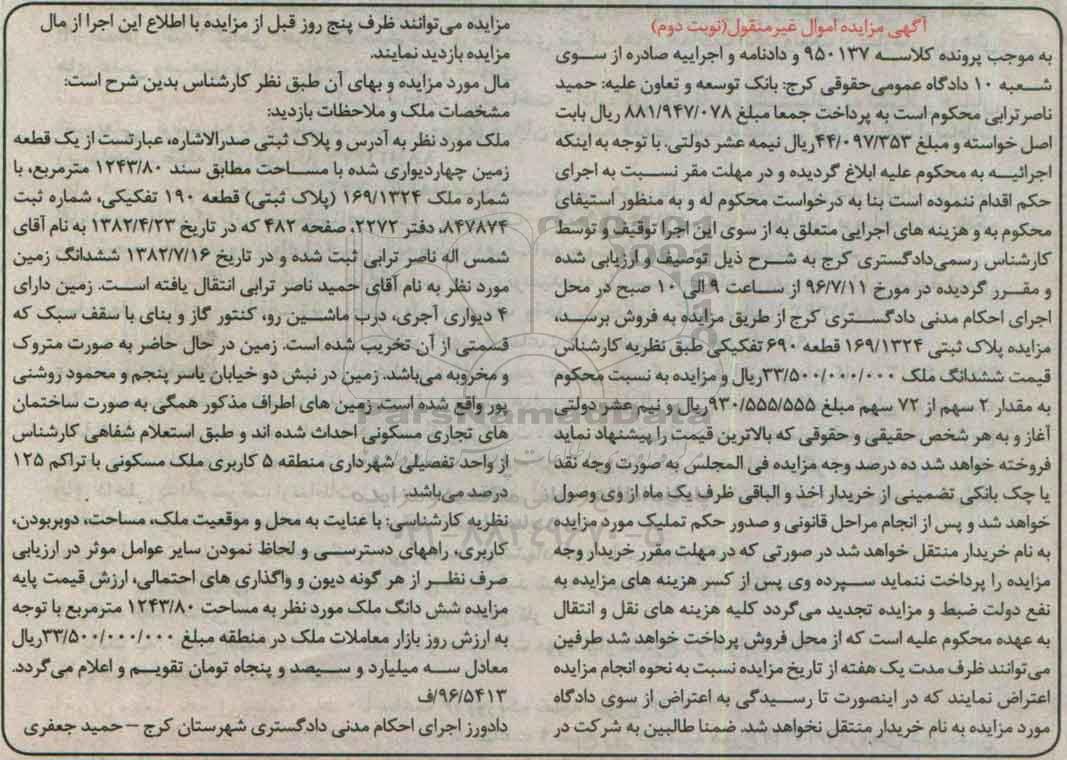 آگهی مزایده اموال غیرمنقول(نوبت دوم)
به موجب پرونده کلاسه ۹۵۰۱۳۷ و دادنامه و اجراییه صادره از سوی
شعبه ۱۰ دادگاه عمومی‌حقوقی کرج: بانک توسعه و تعاون علیه: حمید
ناصرترابی محکوم است به پرداخت جمعا مبلغ ۸۸۱/۹۴۷/۰۷۸ ریال بابت
اصل خواسته و مبلغ ۴۴/۰۹۷/۳۵۳ریال نیمه عشر دولتی. با توجه به اینکه
اجرائیه به محکوم علیه ابلاغ گردیده و در مهلت مقر نسبت به اجرای
حکم اقدام ننموده است بنا به درخواست محکوم له و به منظور استیفای
محکوم به و هزینه های اجرایی متعلق به از سوی این اجرا توقیف و توسط
کارشناس رسمی‌دادگستری کرج به شرح ذیل توصیف و ارزیابی شده
و مقرر گردیده در مورخ ۹۶/۷/۱۱ از ساعت ۹ الی ۱۰ صبح در محل
اجرای احکام مدنی دادگستری کرج از طریق مزایده به فروش برسد،
مزایده پلاک ثبتی ۱۶۹/۱۳۲۴ قطعه ۶۹۰ تفکیکی طبق نظریه کارشناس
قیمت ششدانگ ملک ۳۳/۵۰۰/۰۰۰/۰۰۰ریال و مزایده به نسبت محکوم
به مقدار ۲ سهم از ۷۲ سهم مبلغ ۹۳۰/۵۵۵/۵۵۵ریال و نیم عشر دولتی
آغاز و به هر شخص حقیقی و حقوقی که بالاترین قیمت را پیشنهاد نماید
فروخته خواهد شد ده درصد وجه مزایده فی المجلس به صورت وجه نقد
یا چک بانکی تضمینی از خریدار اخذ و الباقی ظرف یک ماه از وی وصول
خواهد شد و پس از انجام مراحل قانونی و صدور حکم تملیک مورد مزایده
به نام خریدار منتقل خواهد شد در صورتی که در مهلت مقرر خریدار وجه
مزایده را پرداخت ننماید سپرده وی پس از کسر هزینه های مزایده به
نفع دولت ضبط و مزایده تجدید می‌گردد کلیه هزینه های نقل و انتقال
به عهده محکوم علیه است که از محل فروش پرداخت خواهد شد طرفین
می‌توانند ظرف مدت یک هفته از تاریخ مزایده نسبت به نحوه انجام مزایده
اعتراض نمایند که در اینصورت تا رسیدگی به اعتراض از سوی دادگاه
مورد مزایده به نام خریدار منتقل نخواهد شد. ضمنا طالبین به شرکت در
مزایده می‌توانند ظرف پنج روز قبل از مزایده با اطلاع این اجرا از مال
مزایده بازدید نمایند.
مال مورد مزایده و بهای آن طبق نظر کارشناس بدین شرح است:
مشخصات ملک و ملاحظات بازدید:
ملک مورد نظر به آدرس و پلاک ثبتی صدرالاشاره، عبارتست از یک قطعه
زمین چهاردیواری شده با مساحت مطابق سند ۱۲۴۳/۸۰ مترمربع، با
شماره ملک ۱۶۹/۱۳۲۴ (پلاک ثبتی) قطعه ۱۹۰ تفکیکی، شماره ثبت
۸۴۷۸۷۴، دفتر ۲۲۷۲، صفحه ۴۸۲ که در تاریخ ۱۳۸۲/۴/۲۳ به نام آقای
شمس اله ناصر ترابی ثبت شده و در تاریخ ۱۳۸۲/۷/۱۶ ششدانگ زمین
مورد نظر به نام آقای حمید ناصر ترابی انتقال یافته است. زمین دارای
۴ دیواری آجری، درب ماشین رو، کنتور گاز و بنای با سقف سبک که
قسمتی از آن تخریب شده است. زمین در حال حاضر به صورت متروک
و مخروبه می‌باشد. زمین در نبش دو خیابان یاسر پنجم و محمود روشنی
پور واقع شده است. زمین های اطراف مذکور همگی به صورت ساختمان
های تجاری مسکونی احداث شده اند و طبق استعلام شفاهی کارشناس
از واحد تفصیلی شهرداری منطقه ۵ کاربری ملک مسکونی با تراکم ۱۲۵
درصد می‌باشد.
نظریه کارشناسی: با عنایت به محل و موقعیت ملک، مساحت، دوبربودن،
کاربری، راههای دسترسی و لحاظ نمودن سایر عوامل موثر در ارزیابی
صرف نظر از هر گونه دیون و واگذاری های احتمالی، ارزش قیمت پایه
مزایده شش دانگ ملک مورد نظر به مساحت ۱۲۴۳/۸۰ مترمربع با توجه
به ارزش روز بازار معاملات ملک در منطقه مبلغ ۳۳/۵۰۰/۰۰۰/۰۰۰ریال
معادل سه میلیارد و سیصد و پنجاه تومان تقویم و اعلام می‌گردد.
۹۶/۵۴۱۳/ف
دادورز اجرای احکام مدنی دادگستری شهرستان کرج – حمید جعفری